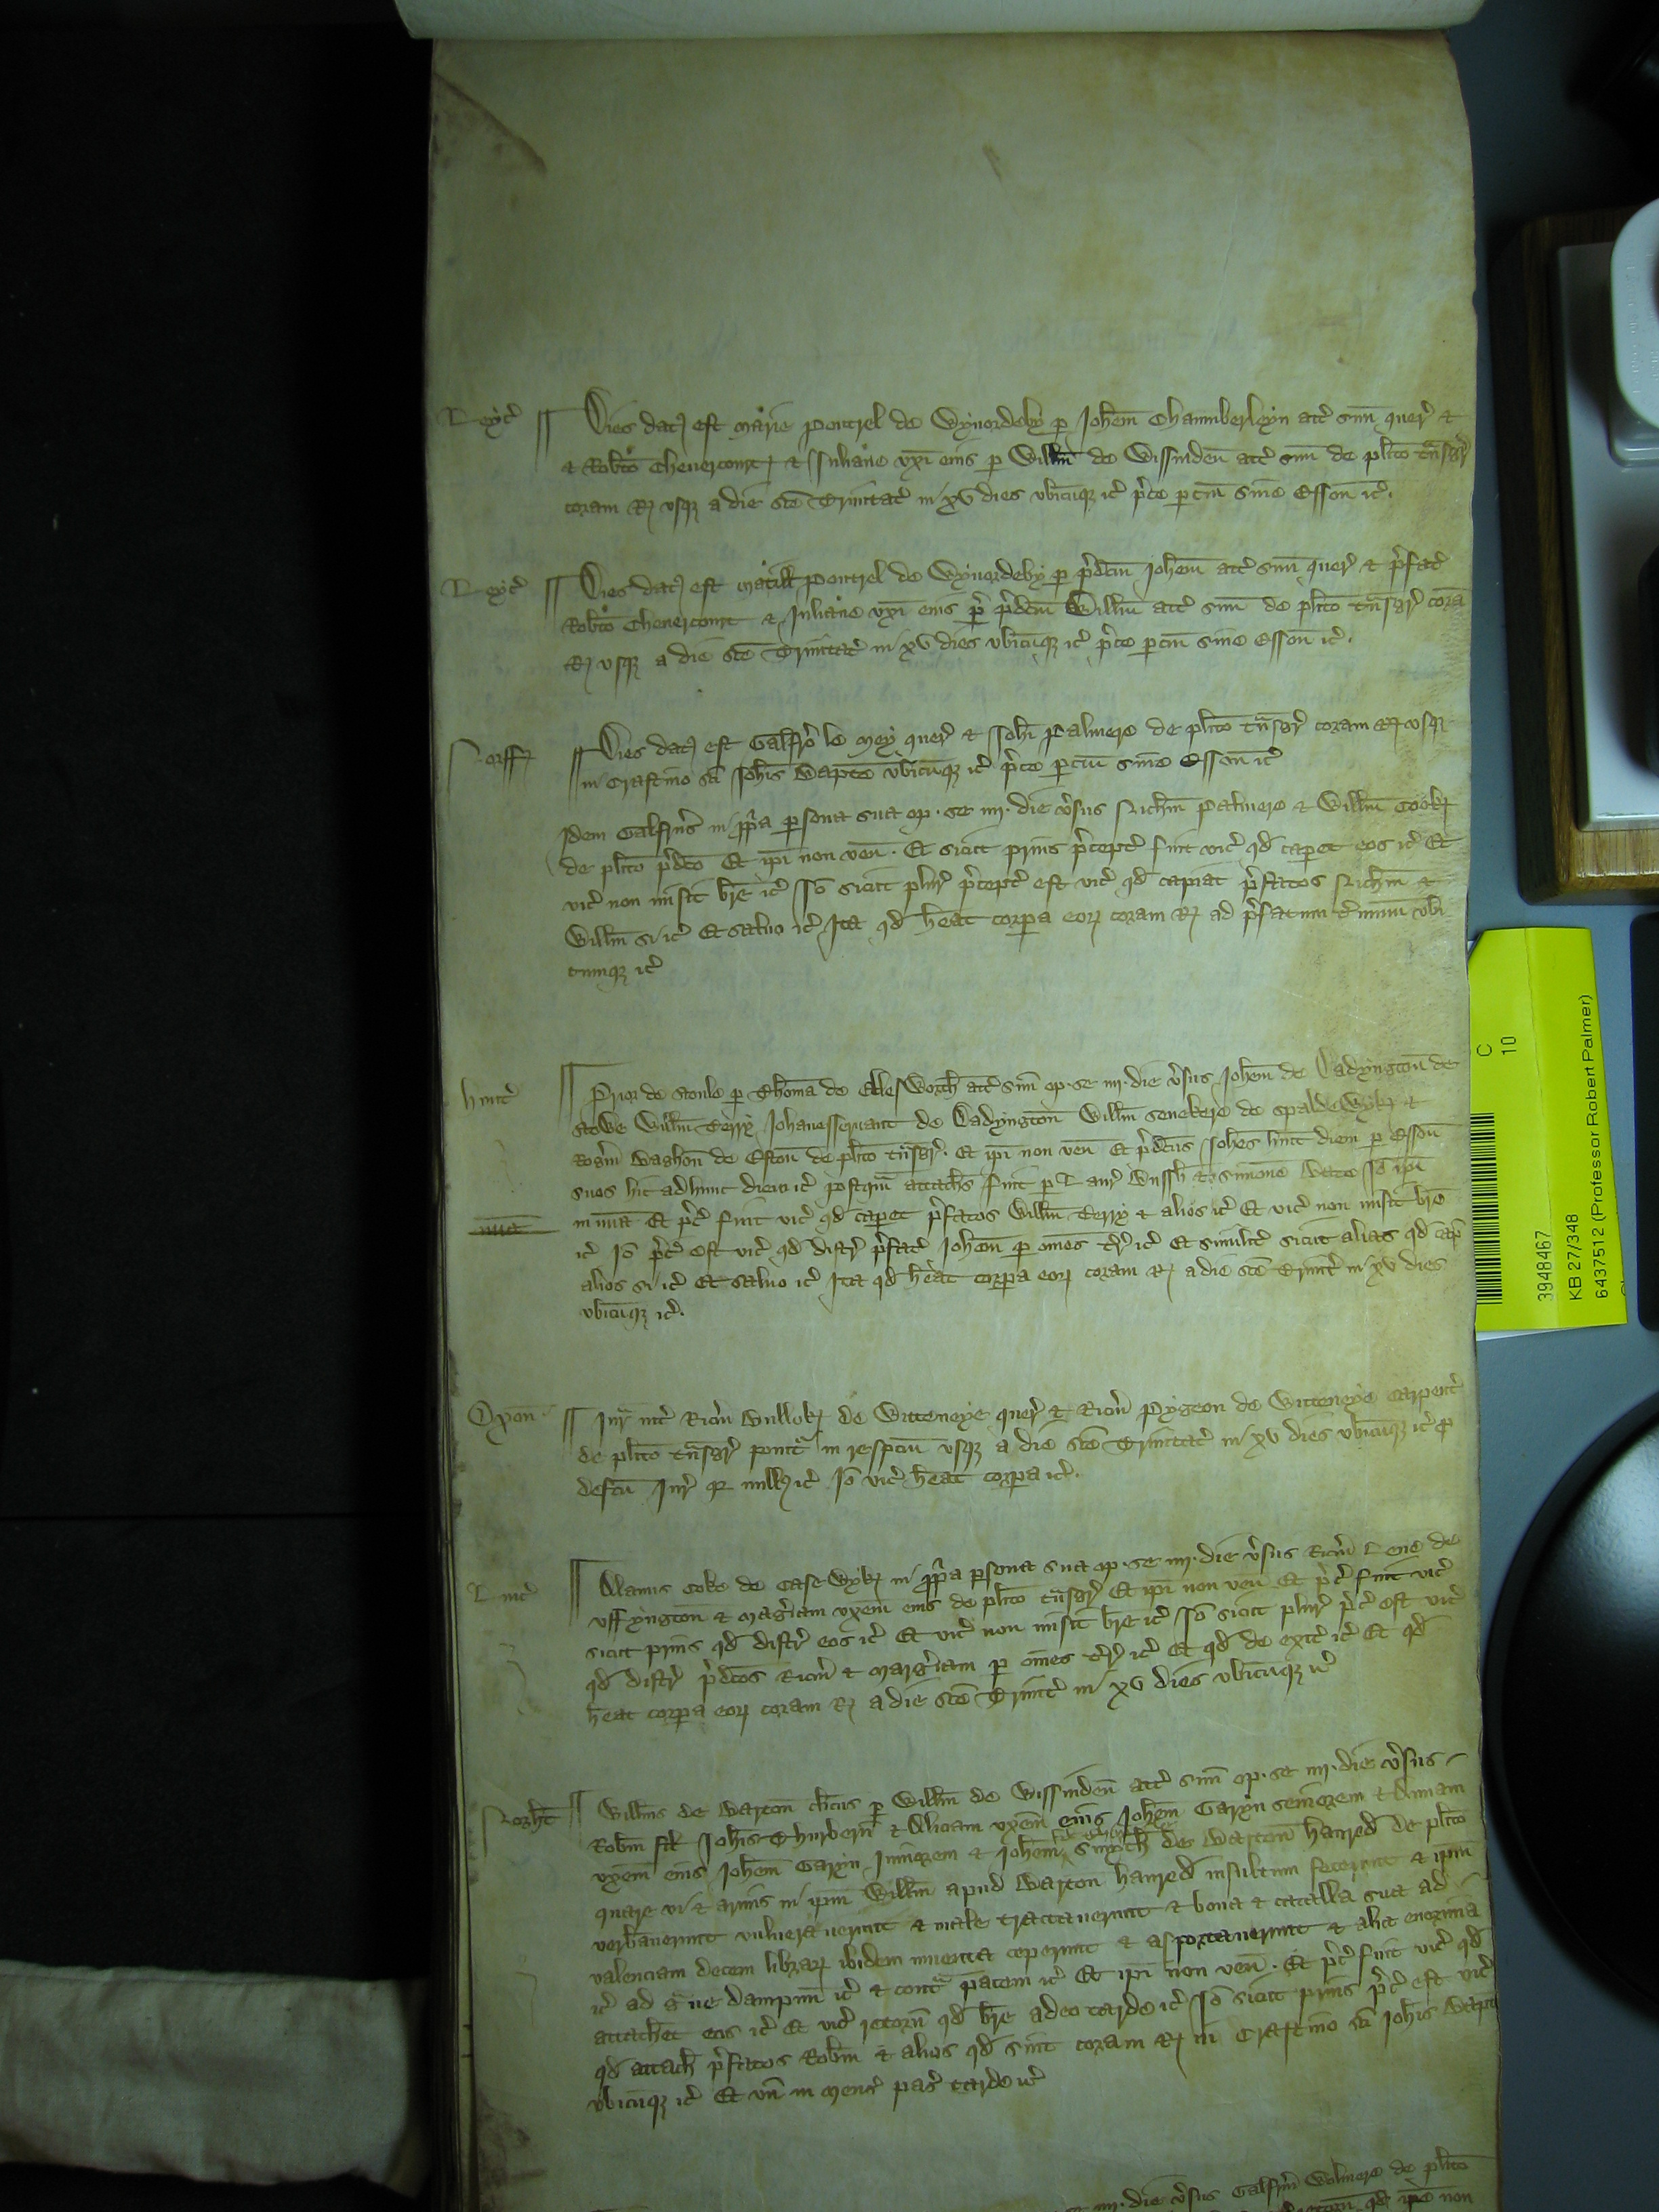 Leyc̉ Dies dat᷒ est Marie Peutrel de Wyuordeby p Joh̄em Chaumberleyn atc̉ suū quer̉ &
& Rob̄to Chenercourt & Juliane vxi eius p Willm̄ de Wissinden̄ atc̉ suū de pl̄ito tn̄sgr̉
coram R vsq a die sc̄e Trinitat̉ in xv dies vbicūq ic̉ p̉ce parciū sine Esson̄ ic̉.
Leyc̉ Dies dat᷒ est Matill̄ Peutrel de Wyuordeby p p̉dc̄m Joh̄em atc̉ suū quer̉ & p̉fat̉
Rob̄to Chenercourt & Juliane vxi eius p p̉dc̄m Willm̄ atc̉ suū de pl̄ito tn̄sgr̉ corā
R vsq a die sc̄e Trinitat̉ in xv dies vbicūq ic̉ p̉ce parciū sine Esson̄ ic̉.
Norff Dies dat᷒ est Galfr̉o le Mey quer̉ & Joh̄i Palmere de pl̄ito tn̄sgr̉ coram R vsq
in Crastino sc̄i Joh̄is Bap̄te vbicūq ic̉ p̉ce parciū sine Esson̄ ic̉
Idem Galfrus in pp̉a psona sua op. se iiij. die v̉sus Nich̄m Palmere & Willm̄ Cook
de pl̄ito p̉dc̄o Et ip̄i non ven̄. Et sicut prius p̉cept̉ fuit vic̉ qd̄ caperet eos ic̉ Et
vic̉ non misit br̄e ic̉ Iō sicut plur̉ p̉cept̉ est vic̉ qd̄ capiat p̉fatos Nich̄m &
Willm̄ si ic̉ Et saluo ic̉ Ita qd̄ h̄eat corpa eor coram R ad p̉fatum t̉minum vbi
cumq ic̉
hunt̉ Prior de Stonle p Thomā de Ellesworth atc̉ suū op. se iiij. die v̉sus Joh̄em de Dadyngton̄ de
Stowe Willm̄ Terry Johanesseruant de Dadyngton̄ Willm̄ Senekere de Spaldewyk &
Rog̉m Washon̄ de Eston̄ de pl̄ito tn̄sgr̉. Et ip̄i non ven̄ Et p̉dc̄us Joh̄es h̄uit diem p Esson̄
suos hic ad hunc diem ic̉ postq̄m attach̄s fuit p Laur̉ & Simonē Bate Iō ip̄i
mīa in mīa Et p̉c̉ fuit vic̉ qd̄ caperet p̉fatos Willm̄ Terry & alios ic̉ Et vic̉ non misit br̄e
ic̉ Iō p̉c̉ est vic̉ qd̄ distr̉ p̉fat̉ Joh̄em p om̄es t̉r̉ ic̉ Et similit̉ sicut alias qd̄ cap̉
alios si ic̉ Et saluo ic̉ Ita qd̄ h̄eat corpa eor coram R a die sc̄e Trinit̉ in xv dies
vbicūq ic̉.
Oxon̄ Jur̉ int̉ Ric̄m Bullok de Witteneye quer̉ & Ric̄m Pygeon de Witteneye carpent̉
de pl̄ito tn̄sgr̉ ponit̉ in respcm̄ vsq a die sc̄e Trinitat̉ in xv dies vbicūq ic̉ p
defcu Jur̉ q null᷒ ic̉ Iō vic̉ h̄eat corpa ic̉.
Linc̉ Alanus Coke de Casewyk in pp̉a psona sua op. se iiij. die v̉sus Ric̄m Lene de
Vffyngton̄ & Marg̉iam vxem̄ eius de pl̄ito tn̄sgr̉ Et ip̄i non ven̄ Et p̉c̉ fuit vic̉
sicut prius qd̄ distr̉ eos ic̉ Et vic̉ non misit br̄e ic̉ Iō sicut plur̉ p̉c̉ est vic̉
qd̄ distr̉ p̉dc̄os Ric̄m & Marg̉iam p om̄es t̉r̉ ic̉ Et qd̄ de exit̉ ic̉ Et qd̄
h̄eat corpa eor coram R a die sc̄e Trinit̉ in xv dies vbicūq ic̉
North̄t Willm̄s de Barton̄ clicus p Willm̄ de Wissinden̄ atc̉ suū op. se iiij. die v̉sus
Rob̄m fil̄ Joh̄is Thurbern̄ & Aliciam vxem̄ eius Joh̄em Garyn seniorem & Annam
vxem̄ eius Joh̄em Garyn Juniorem & Joh̄em Smyth de Barton̄ Hanred de pl̄ito
quare vi & armis in ip̄m Willm̄ apud Barton̄ hanred insultum fecerunt & ip̄m
verb̄auerunt vulnerauerunt & male tractauerunt & bona & catalla sua ad
valenciam decem librar ibidem inuenta ceperunt & asportauerunt & alia enormia
ic̉ ad g̉ue dampnū ic̉ & cont̉ pacem ic̉ Et ip̄i non ven̄. Et p̉c̉ fuit vic̉ qd̄
attach̄et eos ic̉ Et vic̉ retorn̄ qd̄ br̄e adeo tarde ic̉ Iō sicut prius p̉c̉ est vic̉
qd̄ attach̄ p̉fatos Rob̄m & alios qd̄ sint coram R in Crastino sc̄i Joh̄is Bap̄te
vbicūq ic̉ Et vn̄ in Mens̉ pasc̉ tarde ic̉
iiij. die v̉sus Galfrm̄ Wolmere de pl̄ito
qd̄ ip̄e non
C
10
3948467
KB 27/348
6437512 (Professor Robert Palmer)